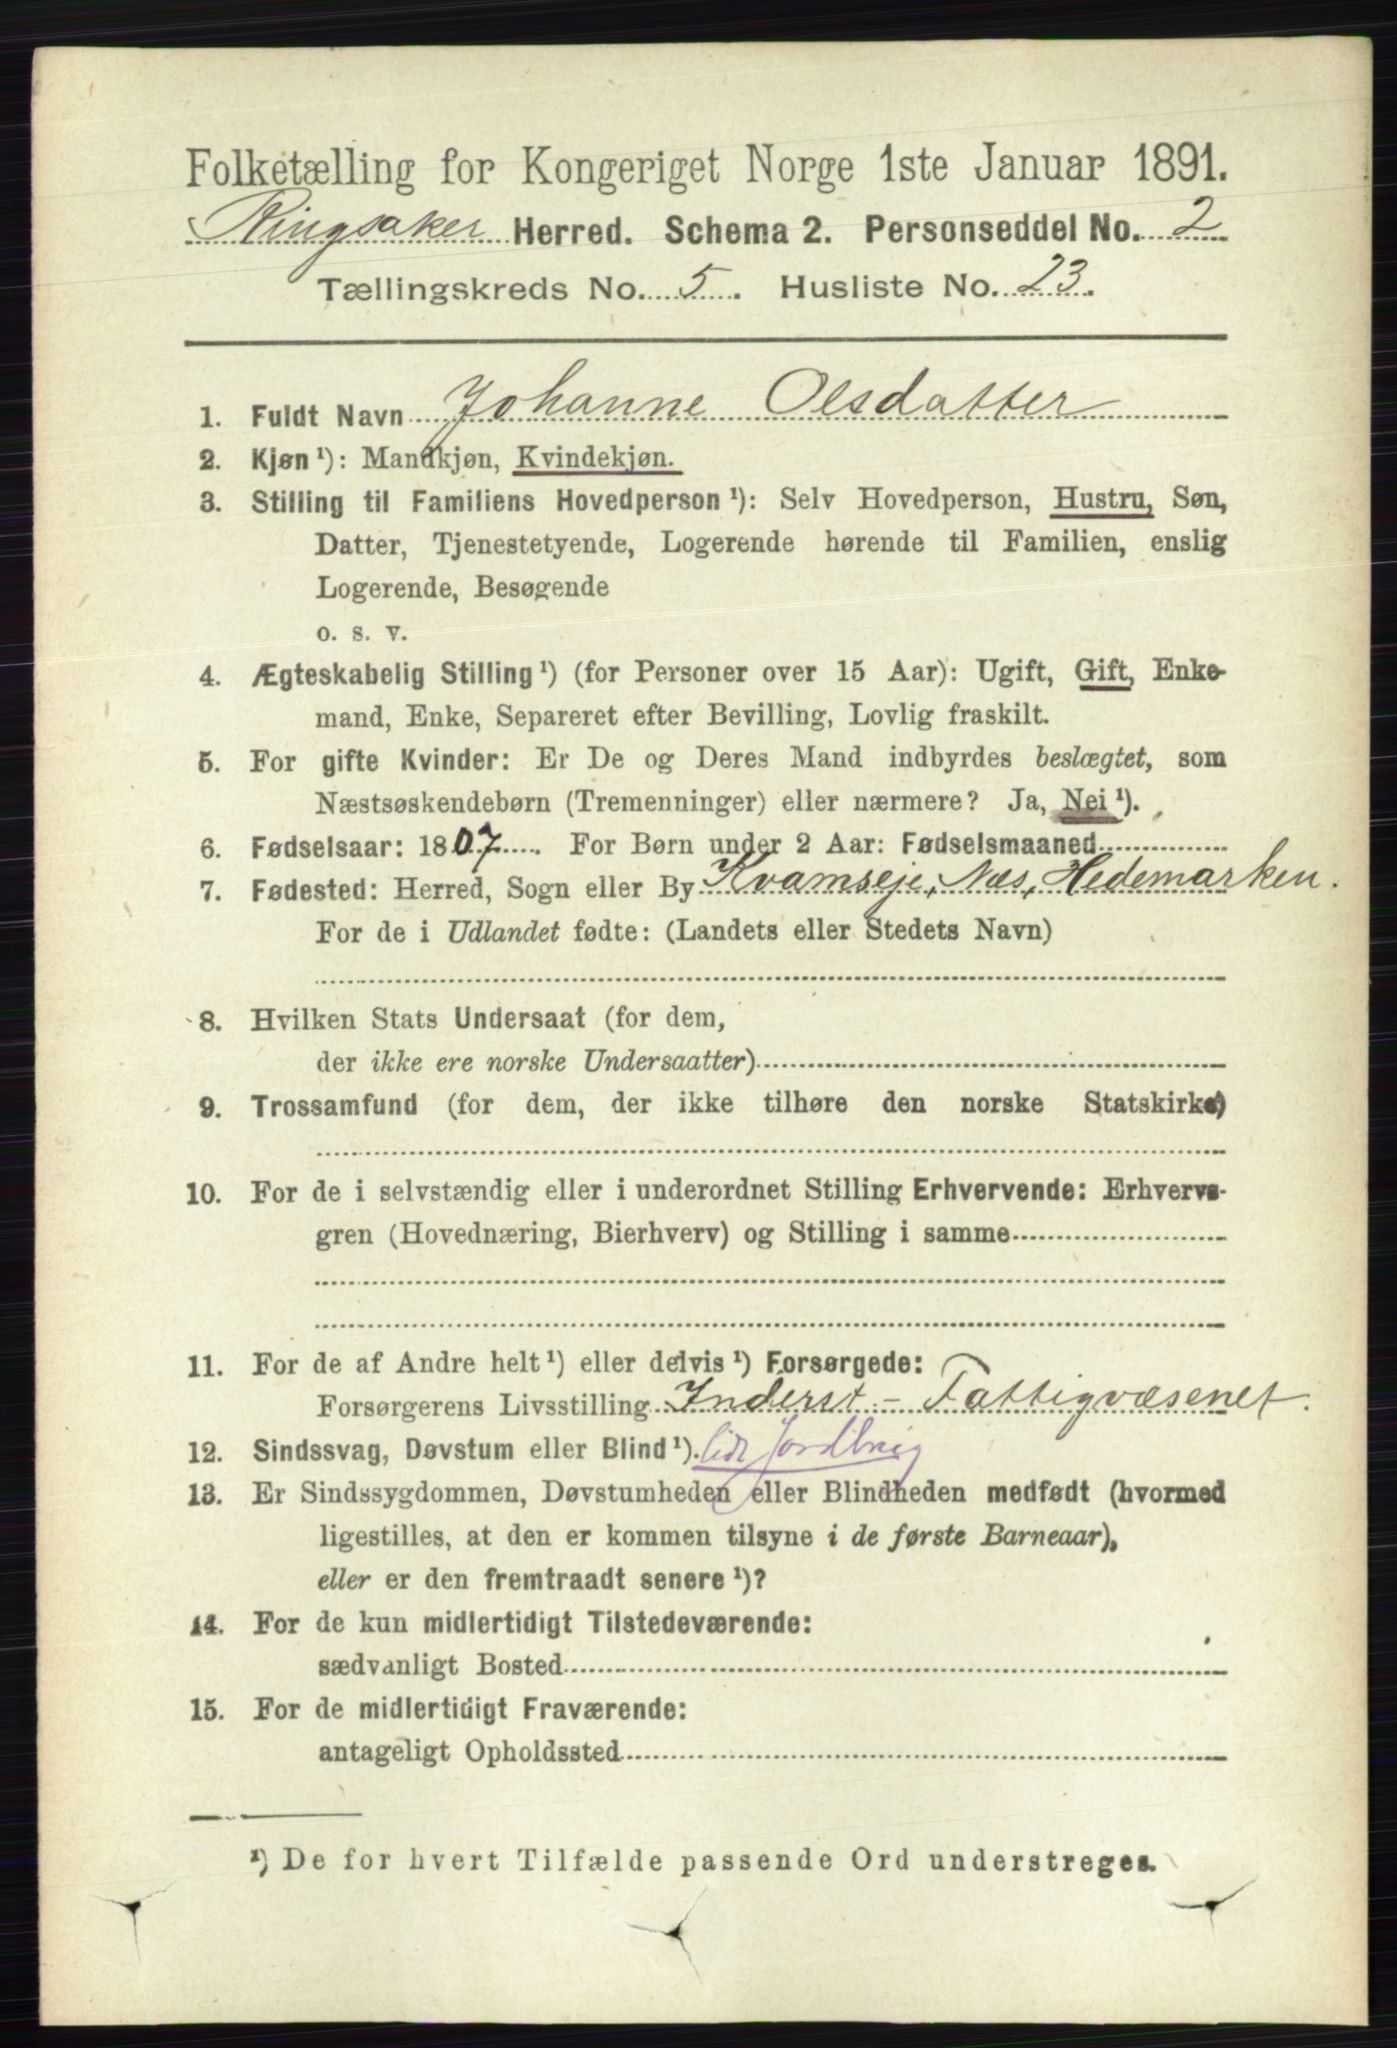 Folketælling for Kongeriget Norge 1ste Januar 1891.
Ringsaker Herred. Schema 2. Personseddel No. 2
Tællingskreds No. 5. Husliste No. 23.
1. Fuldt Navn Johanne Olsdatter
2. Kjøn ¹): Mandkjøn, Kvindekjøn.
3. Stilling til Familiens Hovedperson ¹): Selv Hovedperson, Hustru, Søn,
Datter, Tjenestetyende, Logerende hørende til Familien, enslig
Logerende, Besøgende
o. s. v.
4. Ægteskabelig Stilling ¹) (for Personer over 15 Aar): Ugift, Gift, Enke-
mand, Enke, Separeret efter Bevilling, Lovlig fraskilt.
5. For gifte Kvinder: Er De og Deres Mand indbyrdes beslægtet, som
Næstsøskendebørn (Tremenninger) eller nærmere? Ja, Nei ¹).
6. Fødselsaar: 1807. For Børn under 2 Aar: Fødselsmaaned
7. Fødested: Herred, Sogn eller By Kvamseje, Næs, Hedemarken.
For de i Udlandet fødte: (Landets eller Stedets Navn)
8. Hvilken Stats Undersaat (for dem,
der ikke ere norske Undersaatter)
9. Trossamfund (for dem, der ikke tilhøre den norske Statskirke)
10. For de i selvstændig eller i underordnet Stilling Erhvervende: Erhvervs-
gren (Hovednæring, Bierhverv) og Stilling i samme
11. For de af Andre helt ¹) eller delvis ¹) Forsørgede:
Forsørgerens Livsstilling Inderst - Fattigvæsenet.
12. Sindssvag, Døvstum eller Blind ¹).
13. Er Sindssygdommen, Døvstumheden eller Blindheden medfødt (hvormed
ligestilles, at den er kommen tilsyne i de første Barneaar),
eller er den fremtraadt senere ¹)?
14. For de kun midlertidigt Tilstedeværende:
sædvanligt Bosted
15. For de midlertidigt Fraværende:
antageligt Opholdssted
¹) De for hvert Tilfælde passende Ord understreges.